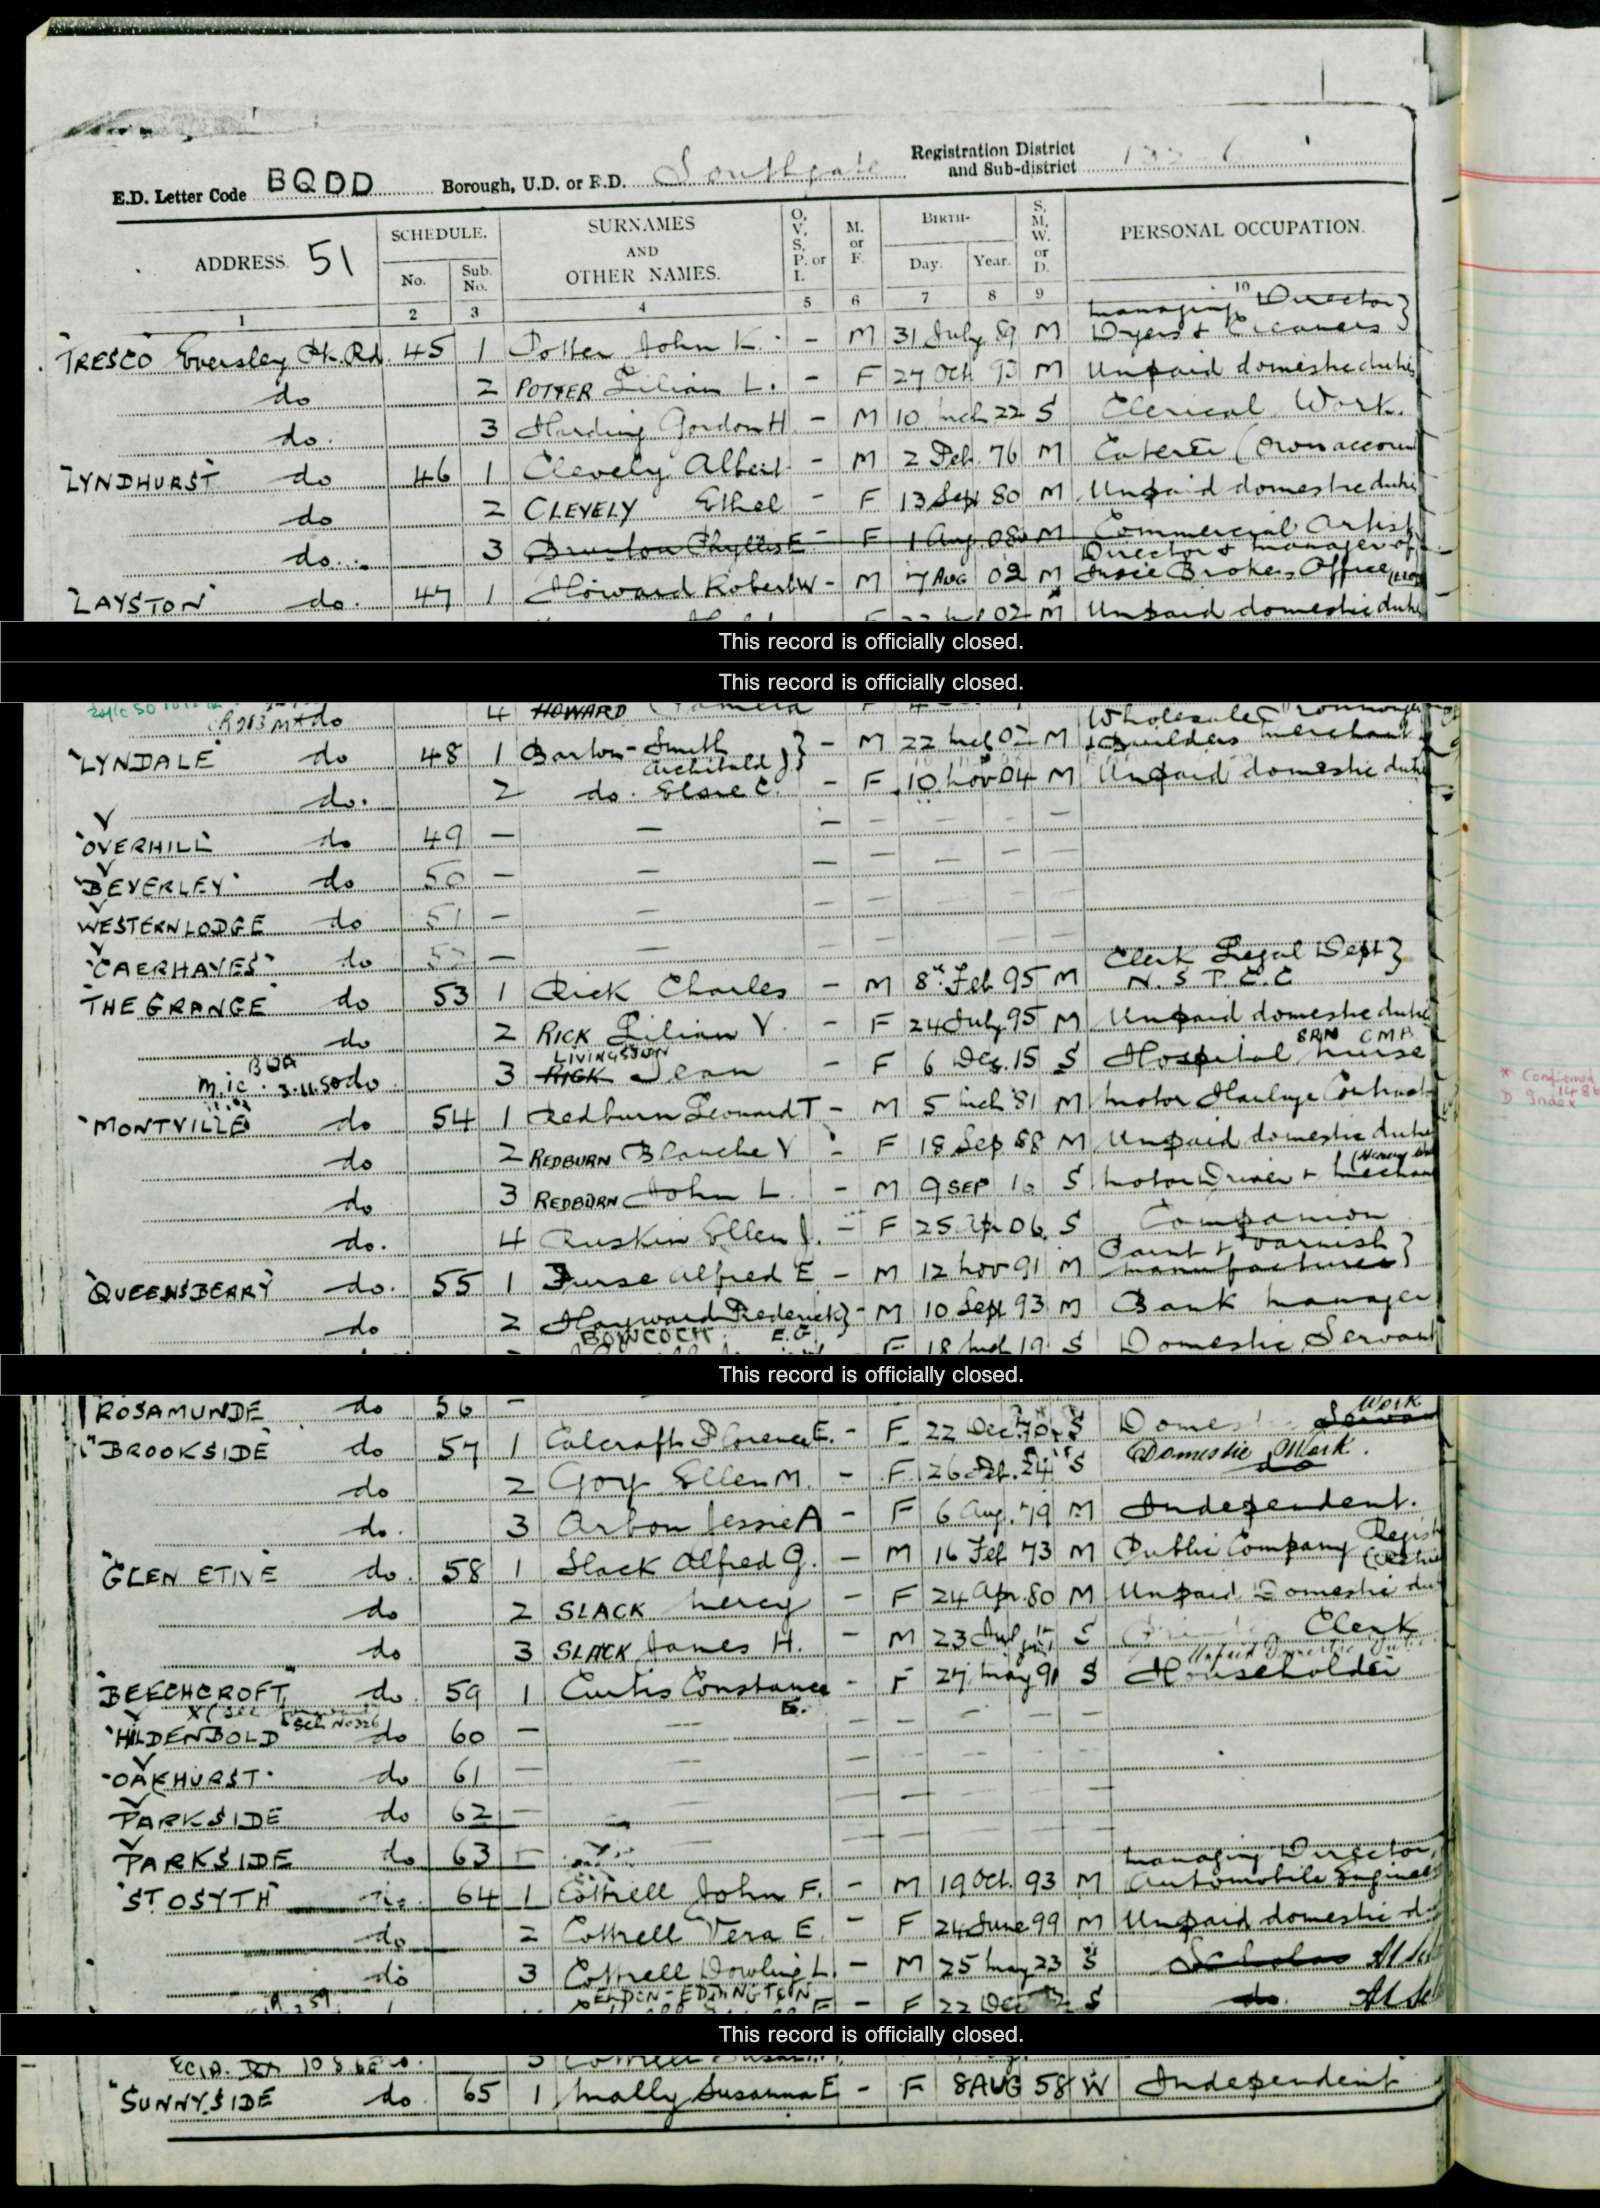 E.D. Letter Code BQDD Borough, U.D. or R.D. Southgate Registration District and Sub-district
ADDRESS. 51 SCHEDULE. No. Sub. No. SURNAMES AND OTHER NAMES. O, V, S, P. or I. M. or F. BIRTH- Day. Year. S, M, W. or D. PERSONAL OCCUPATION.
1 2 3 4 5 6 7 8 9 10
Managing Director }
"TRESCO" Eversley Pk. Rd. 45 1 Potter John K. - M 31 July 89 M Dyers & Cleaners }
do 2 POTTER Lilian L. - F 27 Oct 93 M Unpaid domestic duties
do. 3 Harding Gordon H - M 10 Mch 22 S Clerical Work.
"LYNDHURST" do 46 1 Clevely Albert - M 2 Feb. 76 M Caterer (Own account
do 2 CLEVELY Ethel - F 13 Sept 80 M Unpaid domestic duties
do. 3 Phyllis E - F 1 Aug. 08 M Commercial Artist
Director & Manager of
"LAYSTON" do. 47 1 Howard Robert W - M 7 AUG 02 M Insce Brokers Office
02 M Unpaid domestic duties
This record is officially closed.
This record is officially closed.
do 4 HOWARD Pamela
Wholesale
"LYNDALE" do 48 1 Barton-Smith Archibald } - M 22 02 M & Builders Merchant
do. 2 do. Elsie C. - F 10 Nov 04 M Unpaid domestic duties
"OVERHILL" do 49 - -
"BEVERLEY" do 50 - -
WESTERN LODGE do 51 - -
"CAERHAYES" do 52 - -
Clerk Legal Dept }
"THE GRANGE" do 53 1 Rick Charles - M 8 Feb 95 M N.S.P.C.C
do 2 RICK Lilian V. - F 24 July 95 M Unpaid domestic duties
LIVINGSTON SRN C.M.B.
M.ic. 3.11.50 do. 3 RICK Jean - F 6 Dec. 15 S Hospital Nurse
"MONTVILLE" do 54 1 Redburn Leonard T - M 5 Mch 81 M Motor Haulage Contractor
do 2 REDBURN Blanche V - F 18 Sep 88 M Unpaid domestic duties
do 3 REDBURN John L. - M 9 SEP 10 S Motor Driver &
do. 4 Ruskin Ellen J. - F 25 Apr 06 S Companion
Paint & Varnish }
"QUEENSBERRY" do. 55 1 Furse Alfred E - M 12 Nov 91 M Manufacturer }
do 2 Hayward Frederick } - M 10 Sept 93 M Bank Manager
BOWCOCK E.G.
F 18 19 S Domestic Servant
This record is officially closed.
"ROSAMUNDE do 56 - Work
"BROOKSIDE" do 57 1 Calcraft Florence E. - F 22 Dec. 70 S Servant
do 2 Goy Ellen M. - F 26 24 S Domestic Work.
do. 3 Arbon Jessie A - F 6 Aug. 79 M Independent.
"GLEN ETIVE" do. 58 1 Slack Alfred G. - M 16 Feb 73 M Public Company
do 2 SLACK Mercy - F 24 Apr. 80 M Unpaid Domestic
do 3 SLACK James H. - M 23 S Clerk
Unpaid Domestic
"BEECHCROFT" do. 59 1 Curtis Constance E. - F 27 May 91 S Householder
Sch No 326
"HILDENBOLD" do 60 -
"OAKHURST" do 61 -
PARKSIDE do 62 -
PARKSIDE do 63 -
Managing Director,
"ST OSYTH" 64 1 Cottrell John F. - M 19 Oct. 93 M Automobile Engineer
do 2 Cottrell Vera E. - F 24 June 99 M Unpaid domestic
do 3 Cottrell Dowling L. - M 25 May 23 S Scholar At
ELDEN-EDDINGTON
F 22 Dec S do. At
This record is officially closed.
"SUNNYSIDE do. 65 1 Mally Susanna E - F 8 AUG 58 W Independent
* Confirmed
D Index